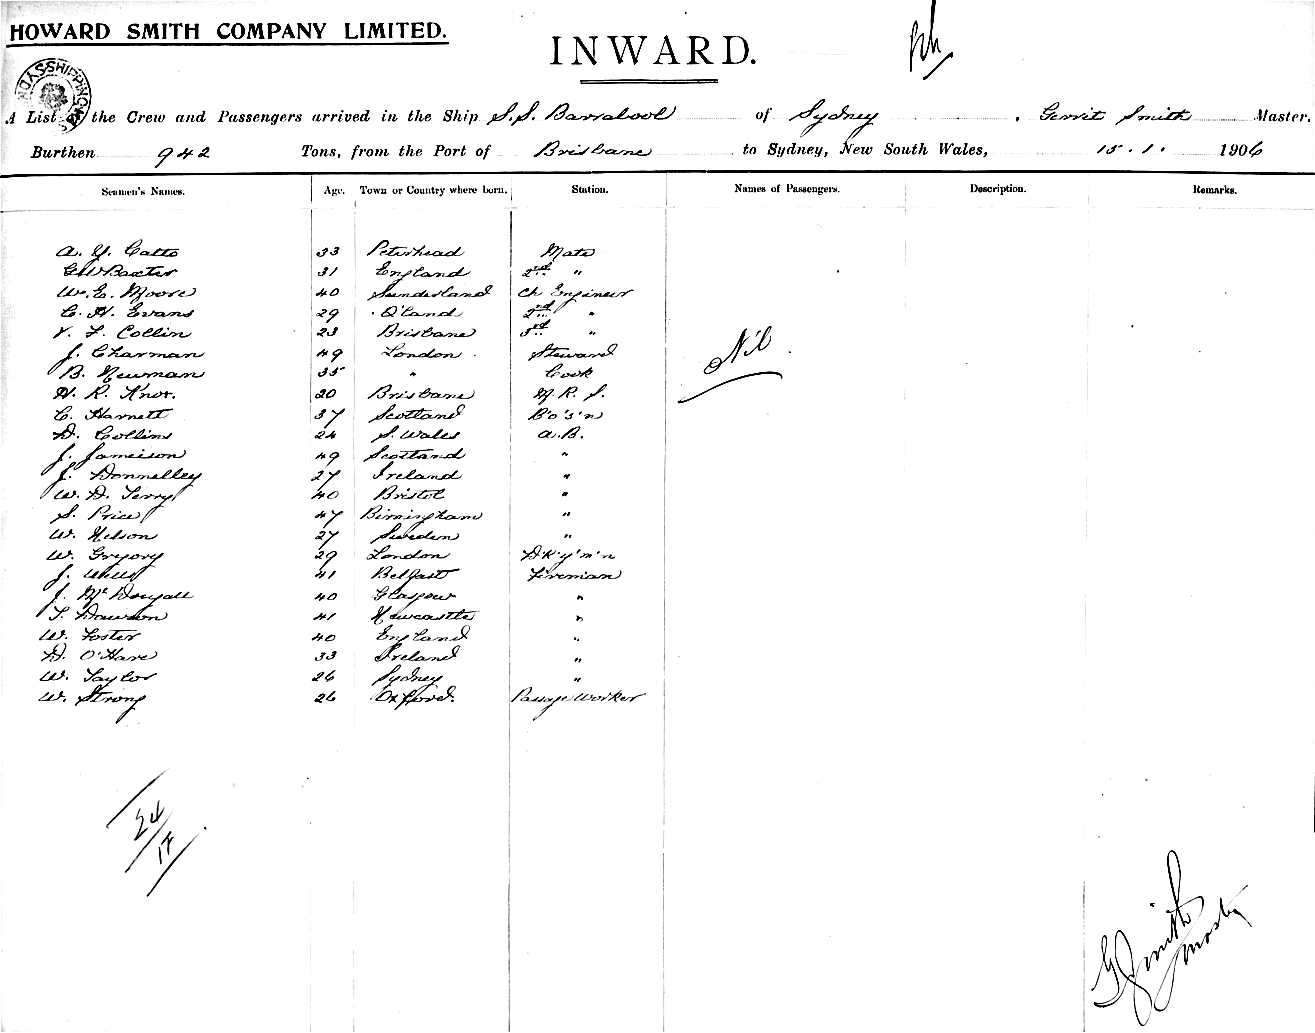 HOWARD SMITH COMPANY LIMITED.
INWARD.
A List of the Crew and Passengers arrived in the Ship S.S. Barrabool of Sydney, Gerrit Smith Master,
Burthen 942 Tons, from the Port of Brisbane to Sydney, New South Wales, 15.1. 1906
Seamen's Names. Age. Town or Country where born. Station. Names of Passengers. Description. Remarks.
A. Y. Catto 33 Peterhead Mate
G W Baxter 31 England 2nd "
W. E. Moore 40 Sunderland Ch Engineer
C. H. Evans 29 Q'land 2nd "
V. F. Collin 23 Brisbane 3rd "
J. Charman 49 London Steward
Nil
B. Newman 35 " Cook
H. R. Knox. 20 Brisbane M. R. S.
C. Harnett 37 Scotland Bo's'n
D. Collins 24 S. Wales A.B.
J. Jameison 49 Scotland "
J. Donnelley 27 Ireland "
W. D. Terry 40 Bristol "
S. Price 47 Birmingham "
W. Nelson 27 Sweden "
W. Gregory 29 London D'k'y'm'n
J. Wells 41 Belfast Fireman
J. McDougall 40 Glasgow "
T. Dawson 41 Newcastle "
W. Foster 40 England "
D. O'Hare 33 Ireland "
W. Taylor 26 Sydney "
W. Strong 26 Oxford. Passage Worker
24/17
G Smith
Master